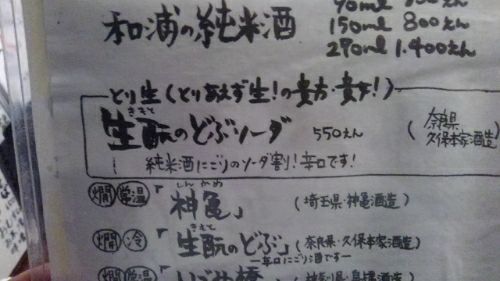 和浦の純米酒
90ml 500えん
150ml 800えん
290ml 1.400えん
とり生(とりあえず生!の貴方・貴女!)
きもと
生酛のどぶソーダ 550えん (奈良県・久保本家酒造
純米酒にごりのソーダ割!辛口です!
燗 常温 「神亀」 (埼玉県・神亀酒造)
しんかめ
燗 冷 「生酛のどぶ」 (奈良県・久保本家酒造)
きもと
ー辛口にごり酒ですー
燗 常温 「いづみ橋」 (神奈川県・泉橋酒造)